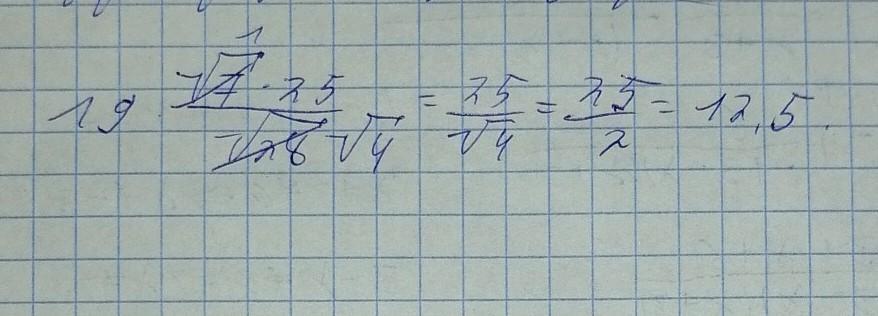 19. √7 1 · 25 / √28 √4 = 25 / √4 = 25 / 2 = 12,5.